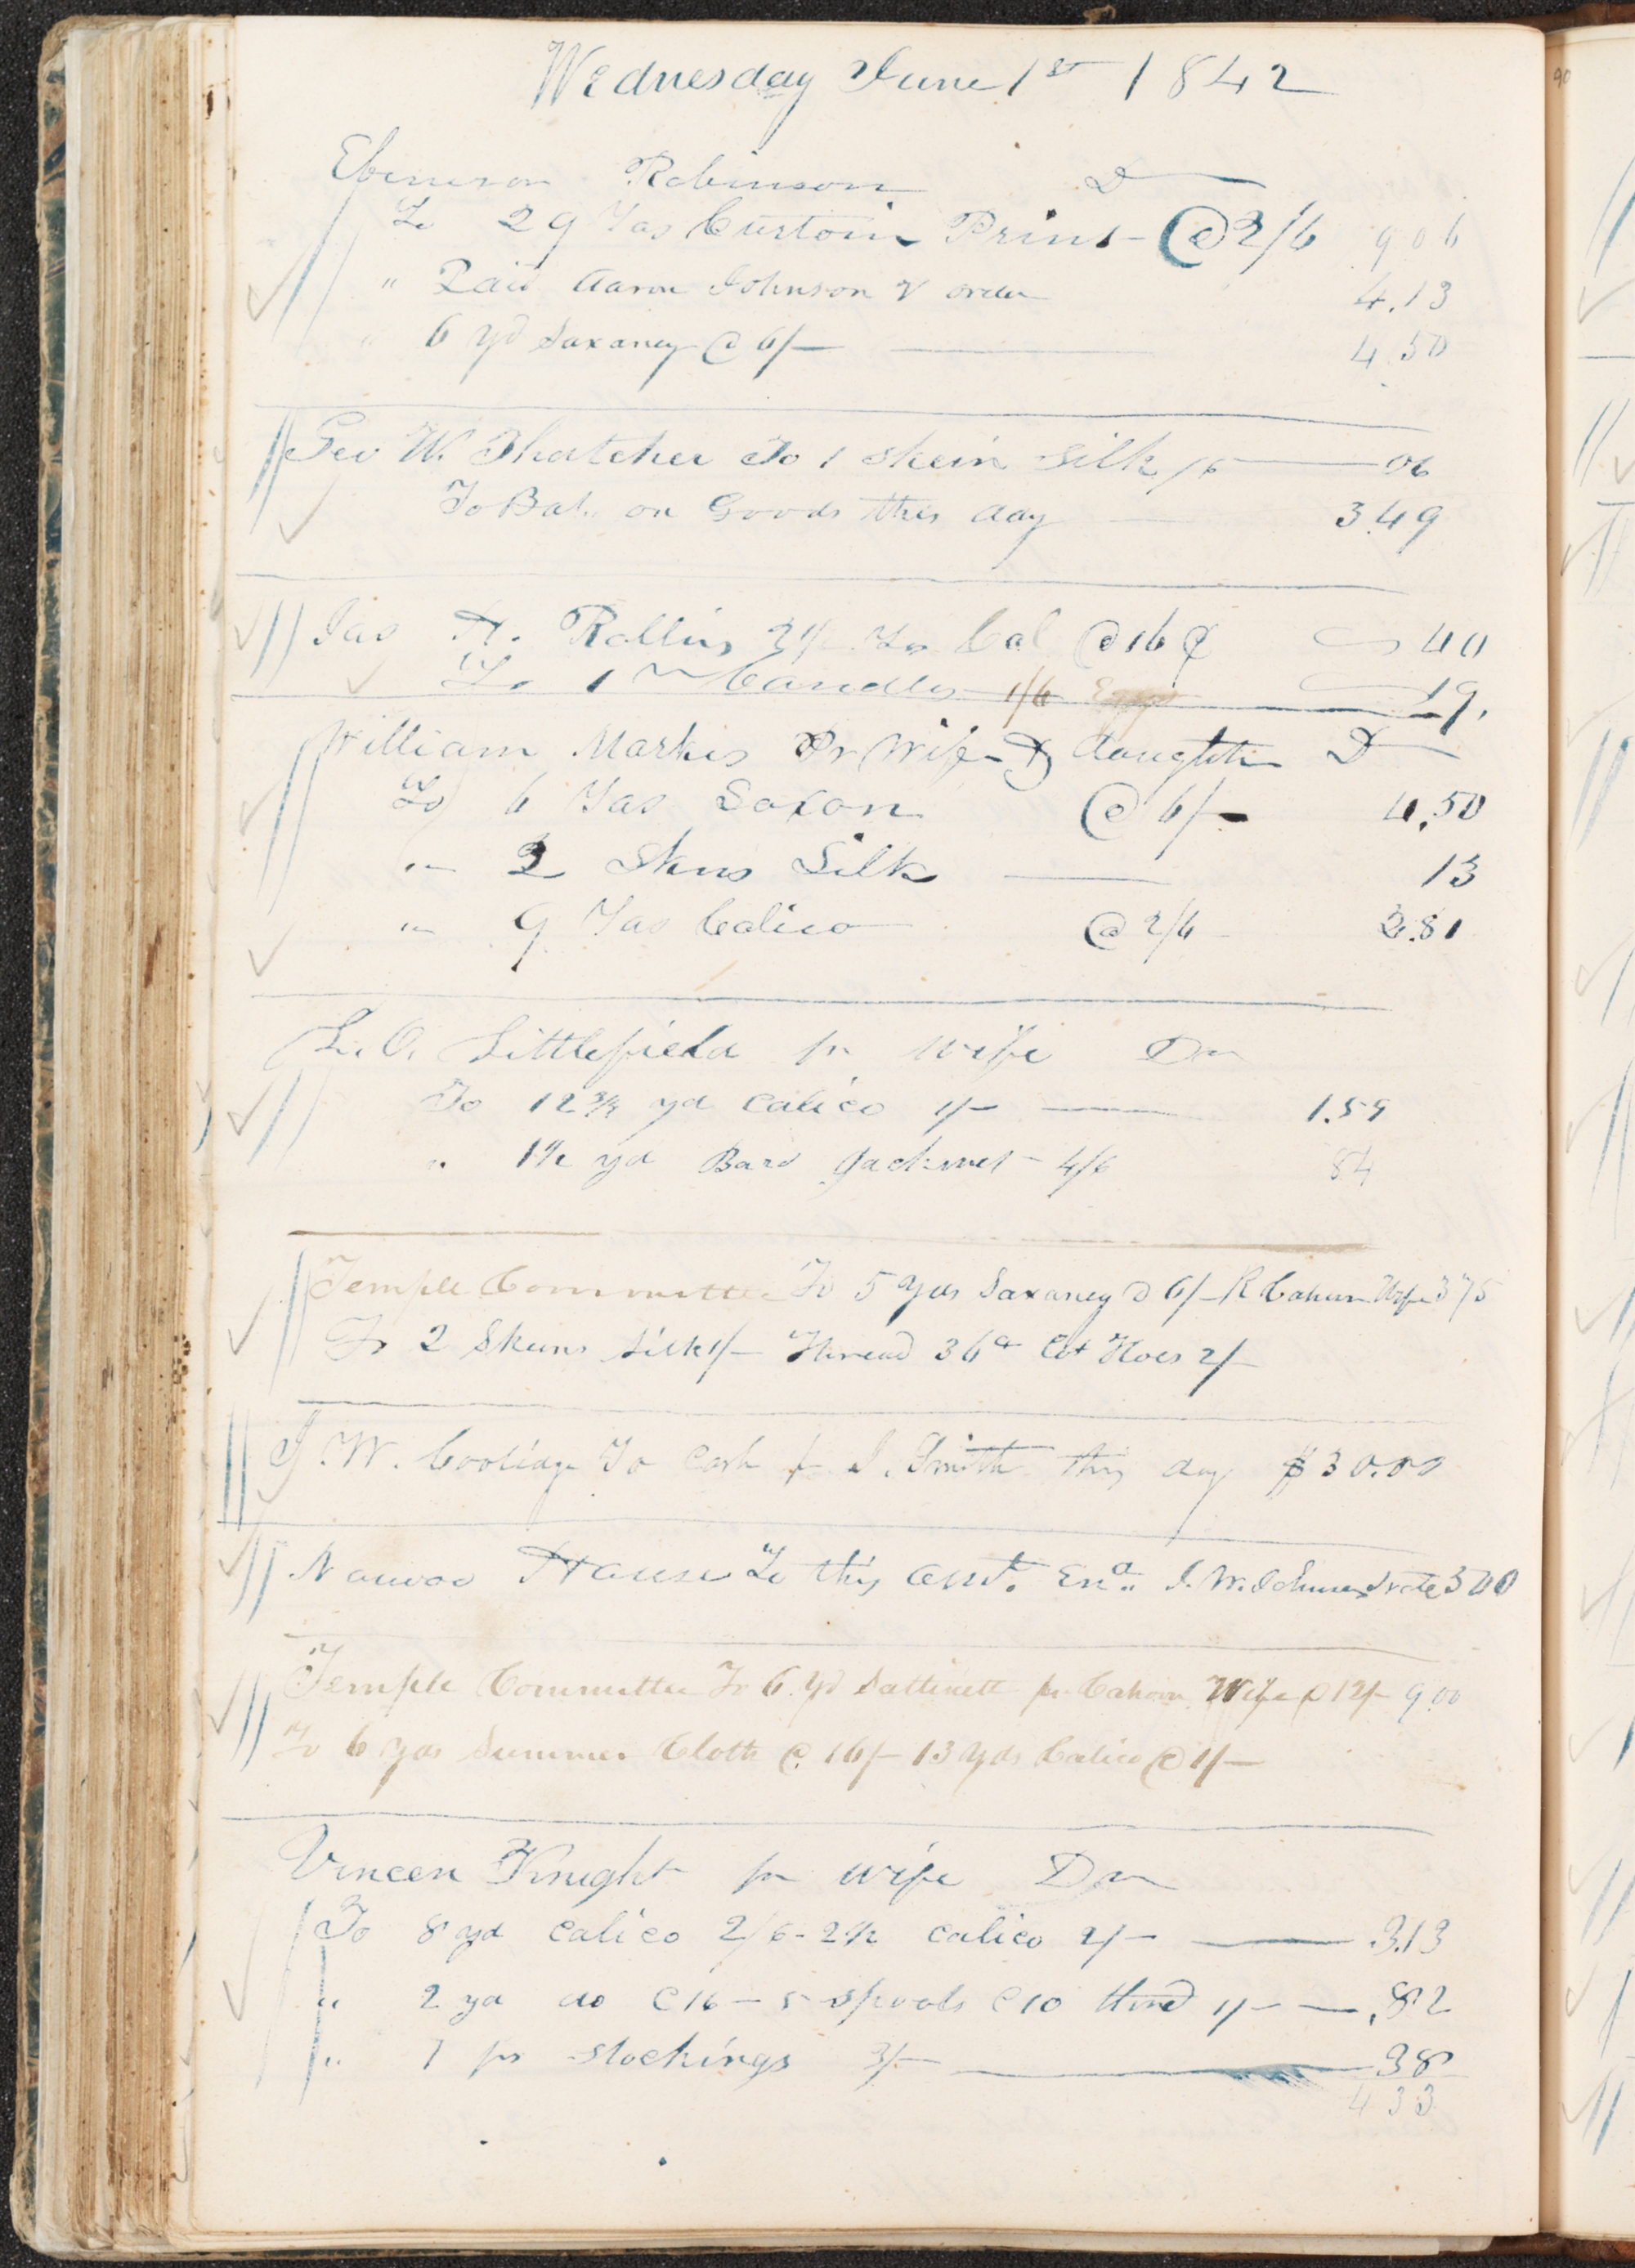 Wednesday June 1st 1842
Ebenezer Robinson D
To 29 Yds Curtain Print @ 2/6 906
" Paid Aaron Johnson order 4.13
" 6 yd Saxaney @ 6/- 4.50
Geo W. Thatcher To 1 Skein Silk /6 06
To Bal. on Goods this day 3.49
Jas H. Rollins 2½ Yds Cal @ 16 ¢ 40
To 1 Candles 1/6 19.
William Markes Pr Wife & daughter D
To 6 Yds Saxon @ 6/- 4.50
" 2 Skns Silk 13
" 9 Yds Calico @ 2/6 2.81
L. O. Littlefield pr wife Dr
To 12¾ yd Calico 1/- 1.59
" 1½ yd Bard Jackonet 4/6 84
Temple Committee To 5 Yds Saxaney @ 6/- R Cahoon Wife 375
To 2 Skeins Silk 1/- Thread 36 Cot Hoes 2/-
J. W. Coolidge To Cash pr J. Smith this day $30.00
Nauvoo House To this amt. End. J. W. Johnson note 300
Temple Committee To 6 yd Sattinett pr Cahoon Wife @ 12/- 9.00
To 6 yds Summer Cloth @ 16/- 13 Yds Calico @ 1/-
Vincen Knight pr wife Dr
To 8 yd Calico 2/6 - 2½ calico 2/- 3.13
" 2 yd do @ 16 - 5 spools @ 10 thrd 1/- .82
" 1 pr stockings 3/- 38
433
90